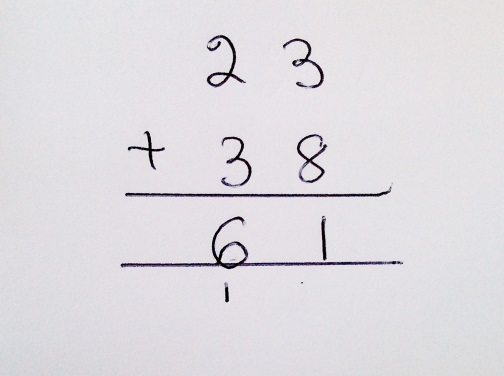 23
+ 38
61
1